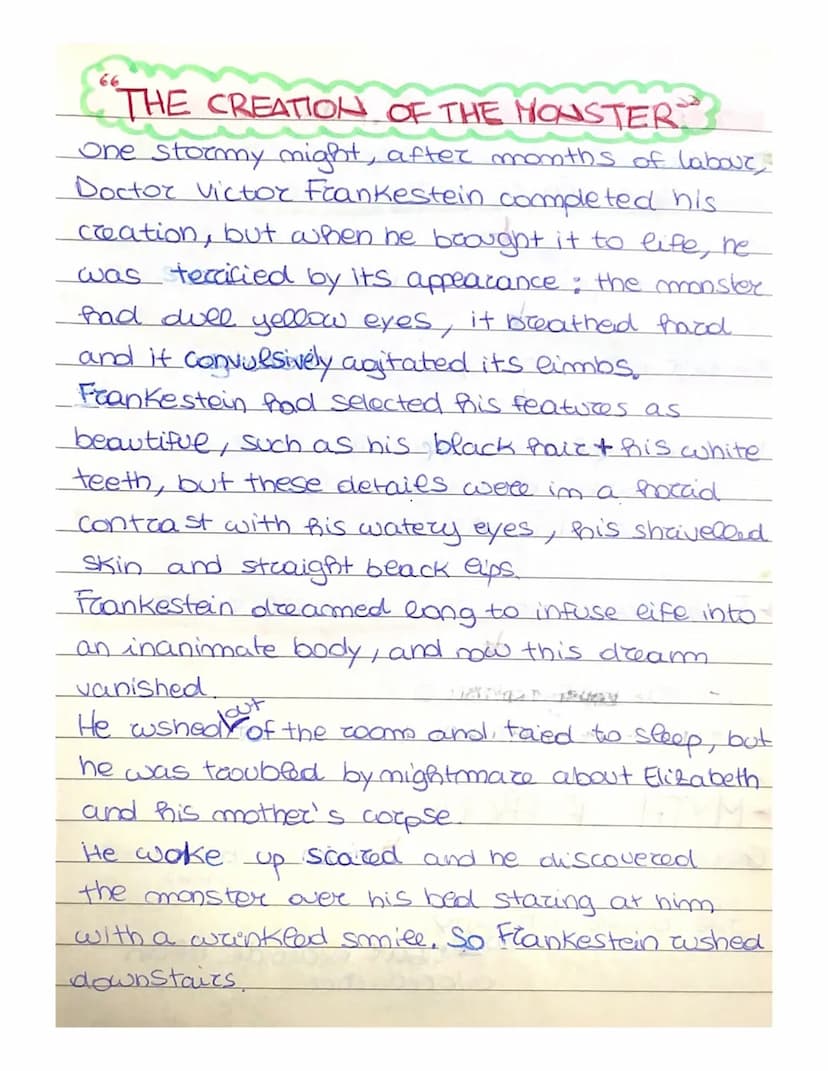 "THE CREATION OF THE MONSTER"
One stormy night, after months of labour,
Doctor Victor Frankestein completed his
creation, but when he brought it to life, he
was terrified by its appearance; the monster
had dull yellow eyes, it breathed hard
and it convulsively agitated its limbs.
Frankestein had selected his features as
beautiful, such as his black hair + his white
teeth, but these details were in a horrid
contrast with his watery eyes, his shrivelled
skin and straight black lips.
Frankestein dreamed long to infuse life into
an inanimate body, and now this dream
vanished.
He rushed out of the room and tried to sleep, but
he was troubled by nightmare about Elizabeth
and his mother's corpse.
He woke up scared and he discovered
the monster over his bed staring at him
with a wrinkled smile. So Frankestein rushed
downstairs.